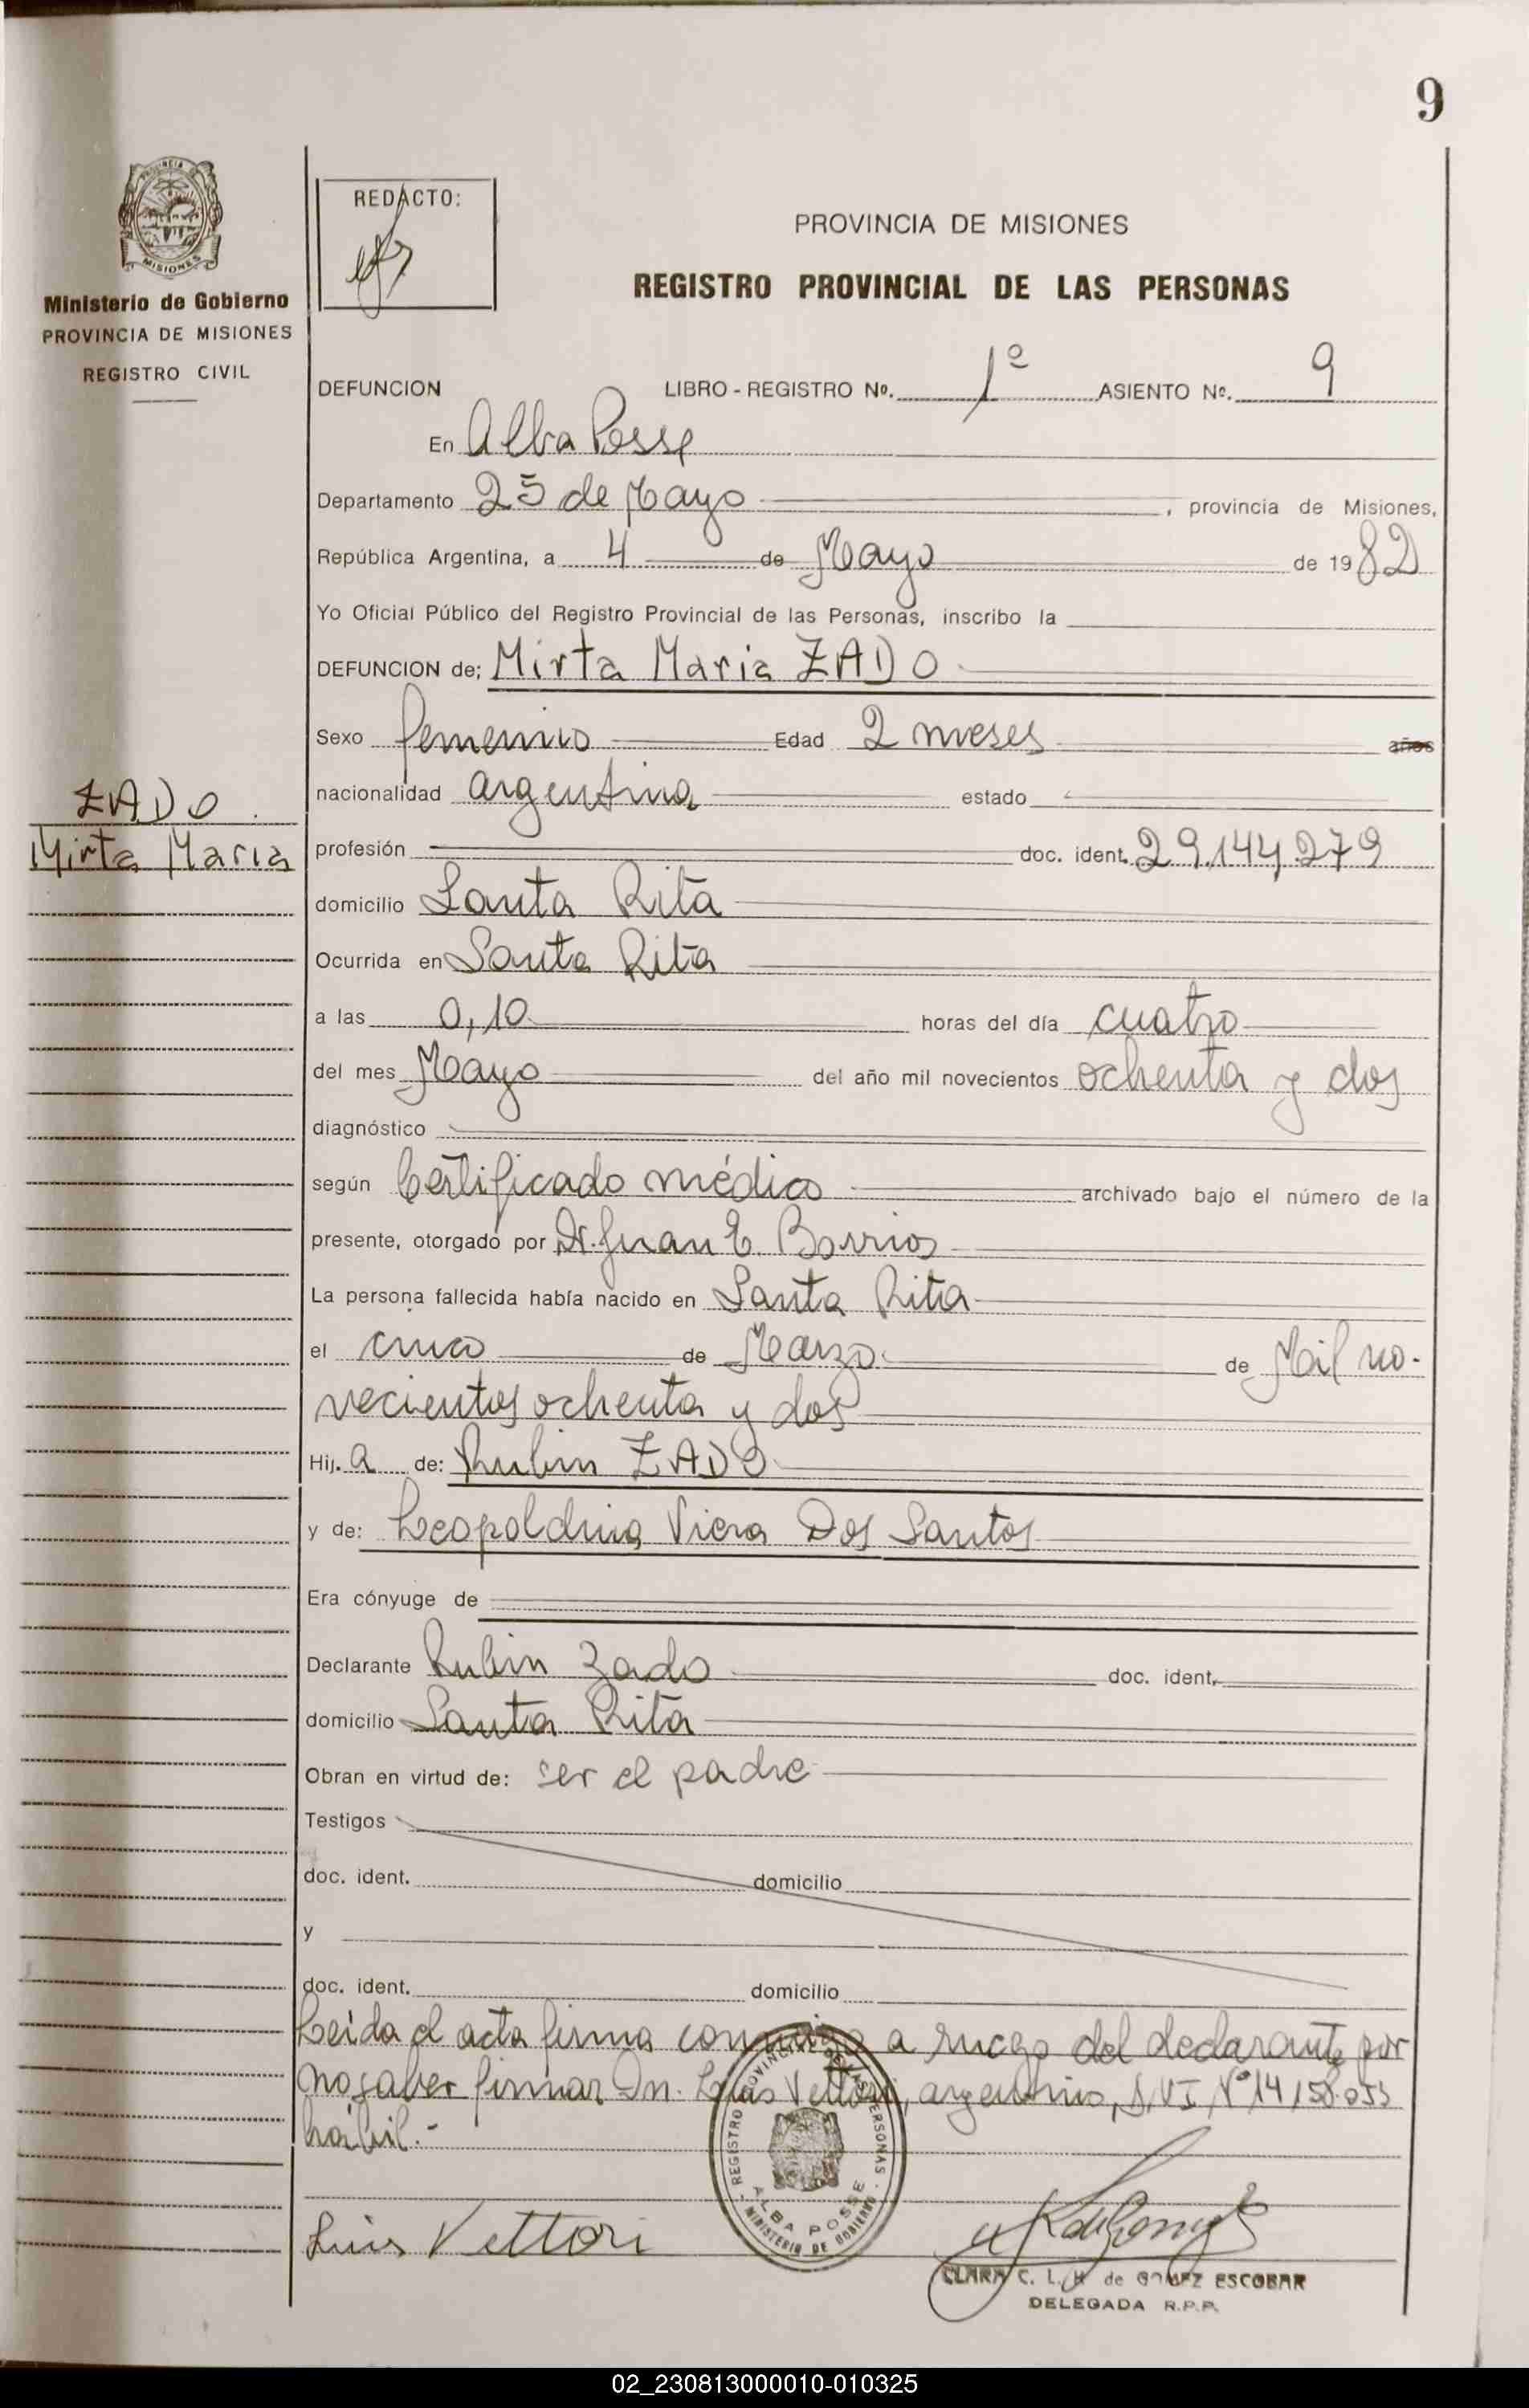 9
PROVINCIA DE
MISIONES
Ministerio de Gobierno
PROVINCIA DE MISIONES
REGISTRO CIVIL
REDACTO:
PROVINCIA DE MISIONES
REGISTRO PROVINCIAL DE LAS PERSONAS
DEFUNCION LIBRO - REGISTRO Nº. 1º ASIENTO Nº. 9
En Alba Posse
Departamento 25 de Mayo , provincia de Misiones,
República Argentina, a 4 de Mayo de 1982
Yo Oficial Público del Registro Provincial de las Personas, inscribo la
DEFUNCION de: Mirta Maria ZADO
Sexo femenino Edad 2 meses años
ZADO
Mirta Maria
nacionalidad argentina estado
profesión doc. ident. 29.144.279
domicilio Santa Rita
Ocurrida en Santa Rita
a las 0,10 horas del día cuatro
del mes Mayo del año mil novecientos ochenta y dos
diagnóstico
según Certificado médico archivado bajo el número de la
presente, otorgado por Dr. Juan E. Barrios
La persona fallecida había nacido en Santa Rita
el cinco de Marzo de Mil no-
vecientos ochenta y dos
Hij.a de: Rubin ZADO
y de: Leopoldina Viera Dos Santos
Era cónyuge de
Declarante Rubin Zado doc. ident.
domicilio Santa Rita
Obran en virtud de: ser el padre
Testigos
doc. ident. domicilio
y
doc. ident. domicilio
Leida el acta firma conmigo a ruego del declarante por
no saber firmar Dn. Luis Vettori, argentino, D.N.I. Nº 14.158.053
hábil.-
REGISTRO PROVINCIAL DE LAS PERSONAS
ALBA POSSE
MINISTERIO DE GOBIERNO
Luis Vettori
CLARA C. L. H. de GOMEZ ESCOBAR
DELEGADA R.P.P.
02_230813000010-010325